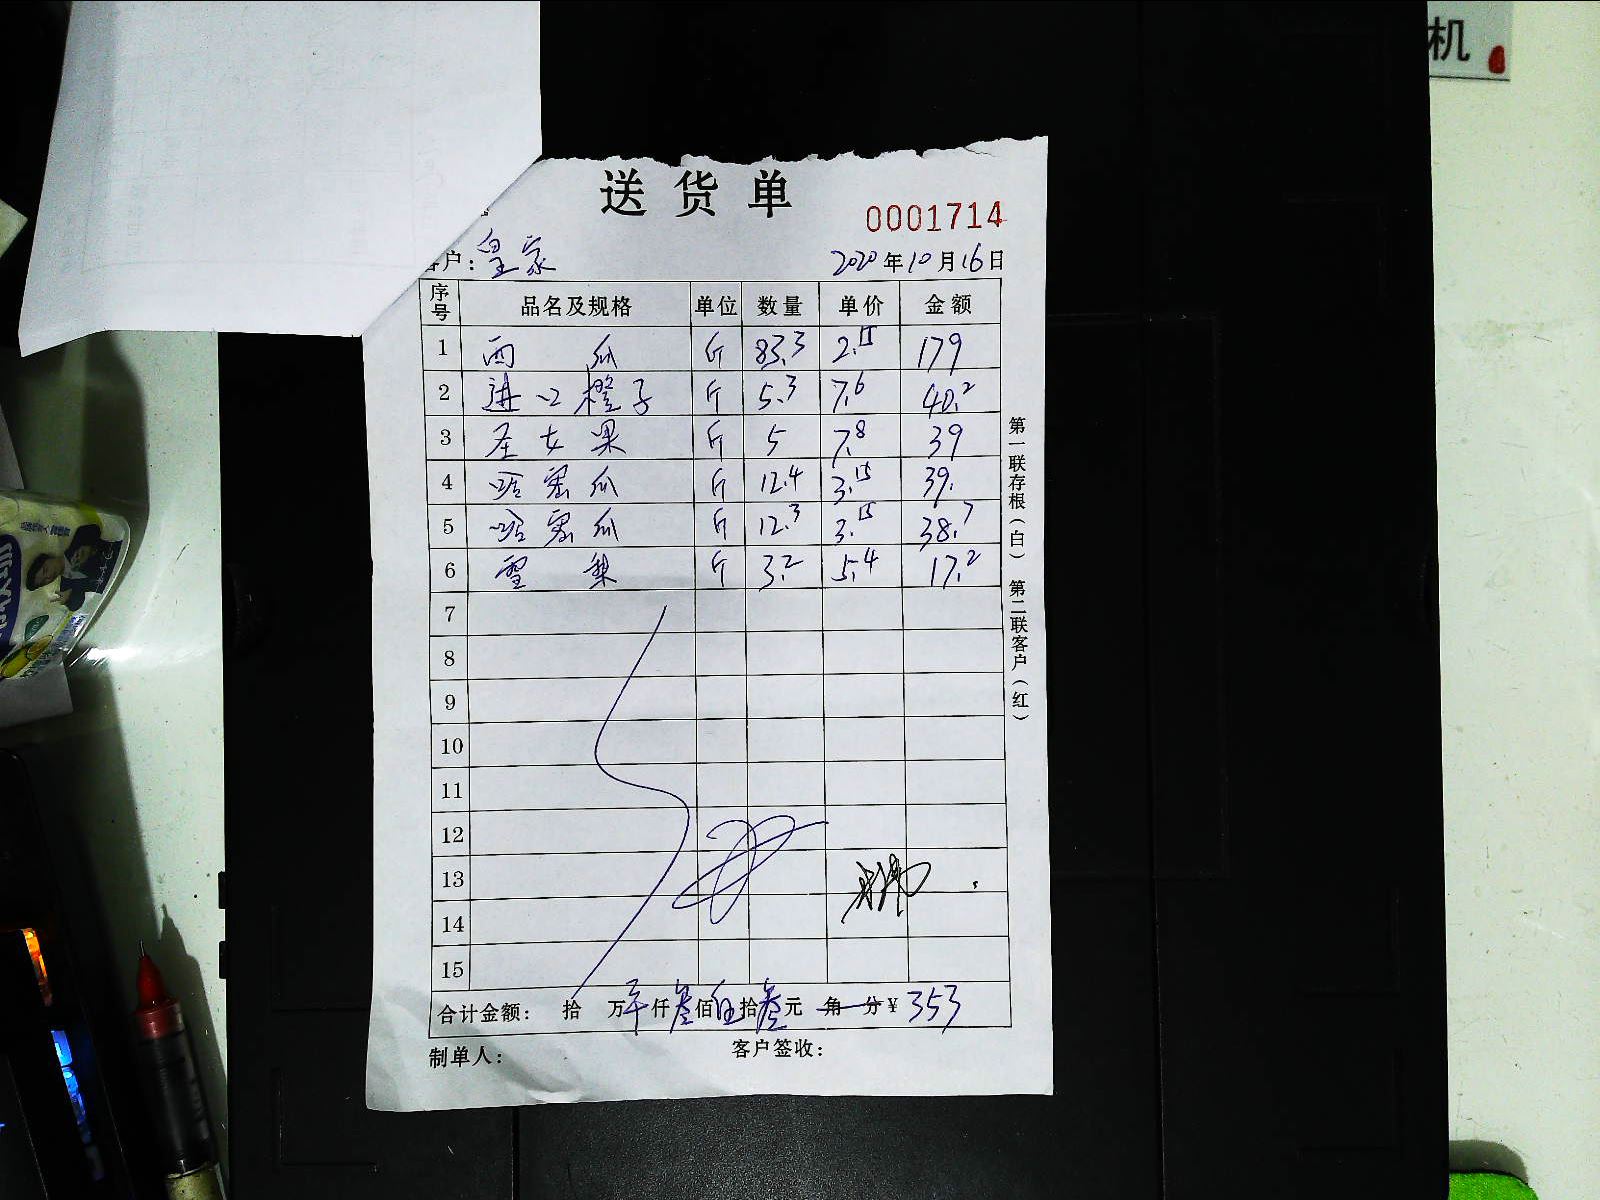 机
送货单
0001714
客户：皇家
2020年10月16日
序号 品名及规格 单位 数量 单价 金额
1 西瓜 斤 83.3 2.15 179
2 进口橙子 斤 5.3 7.6 40.2
3 圣女果 斤 5 7.8 39
4 哈密瓜 斤 12.4 3.15 39.
5 哈密瓜 斤 12.3 3.15 38.7
6 雪梨 斤 3.2 5.4 17.2
7
8
9
10
11
12
13
14
15
合计金额： 拾 万 仟 叁 佰 伍 拾 叁 元 角 分 ¥ 353
制单人： 客户签收：
第一联存根（白） 第二联客户（红）